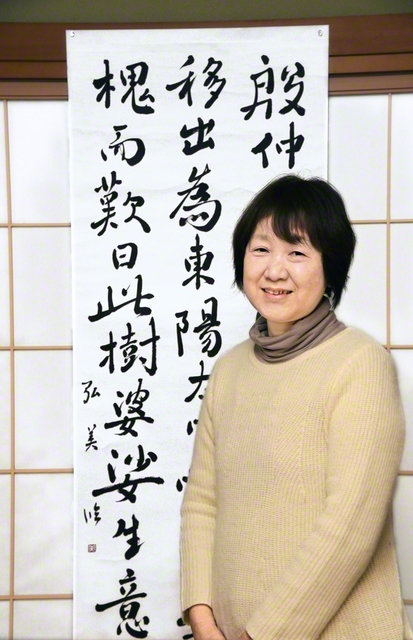 殷仲
移出為東陽太
槐而歎曰此樹婆娑生意
弘美臨